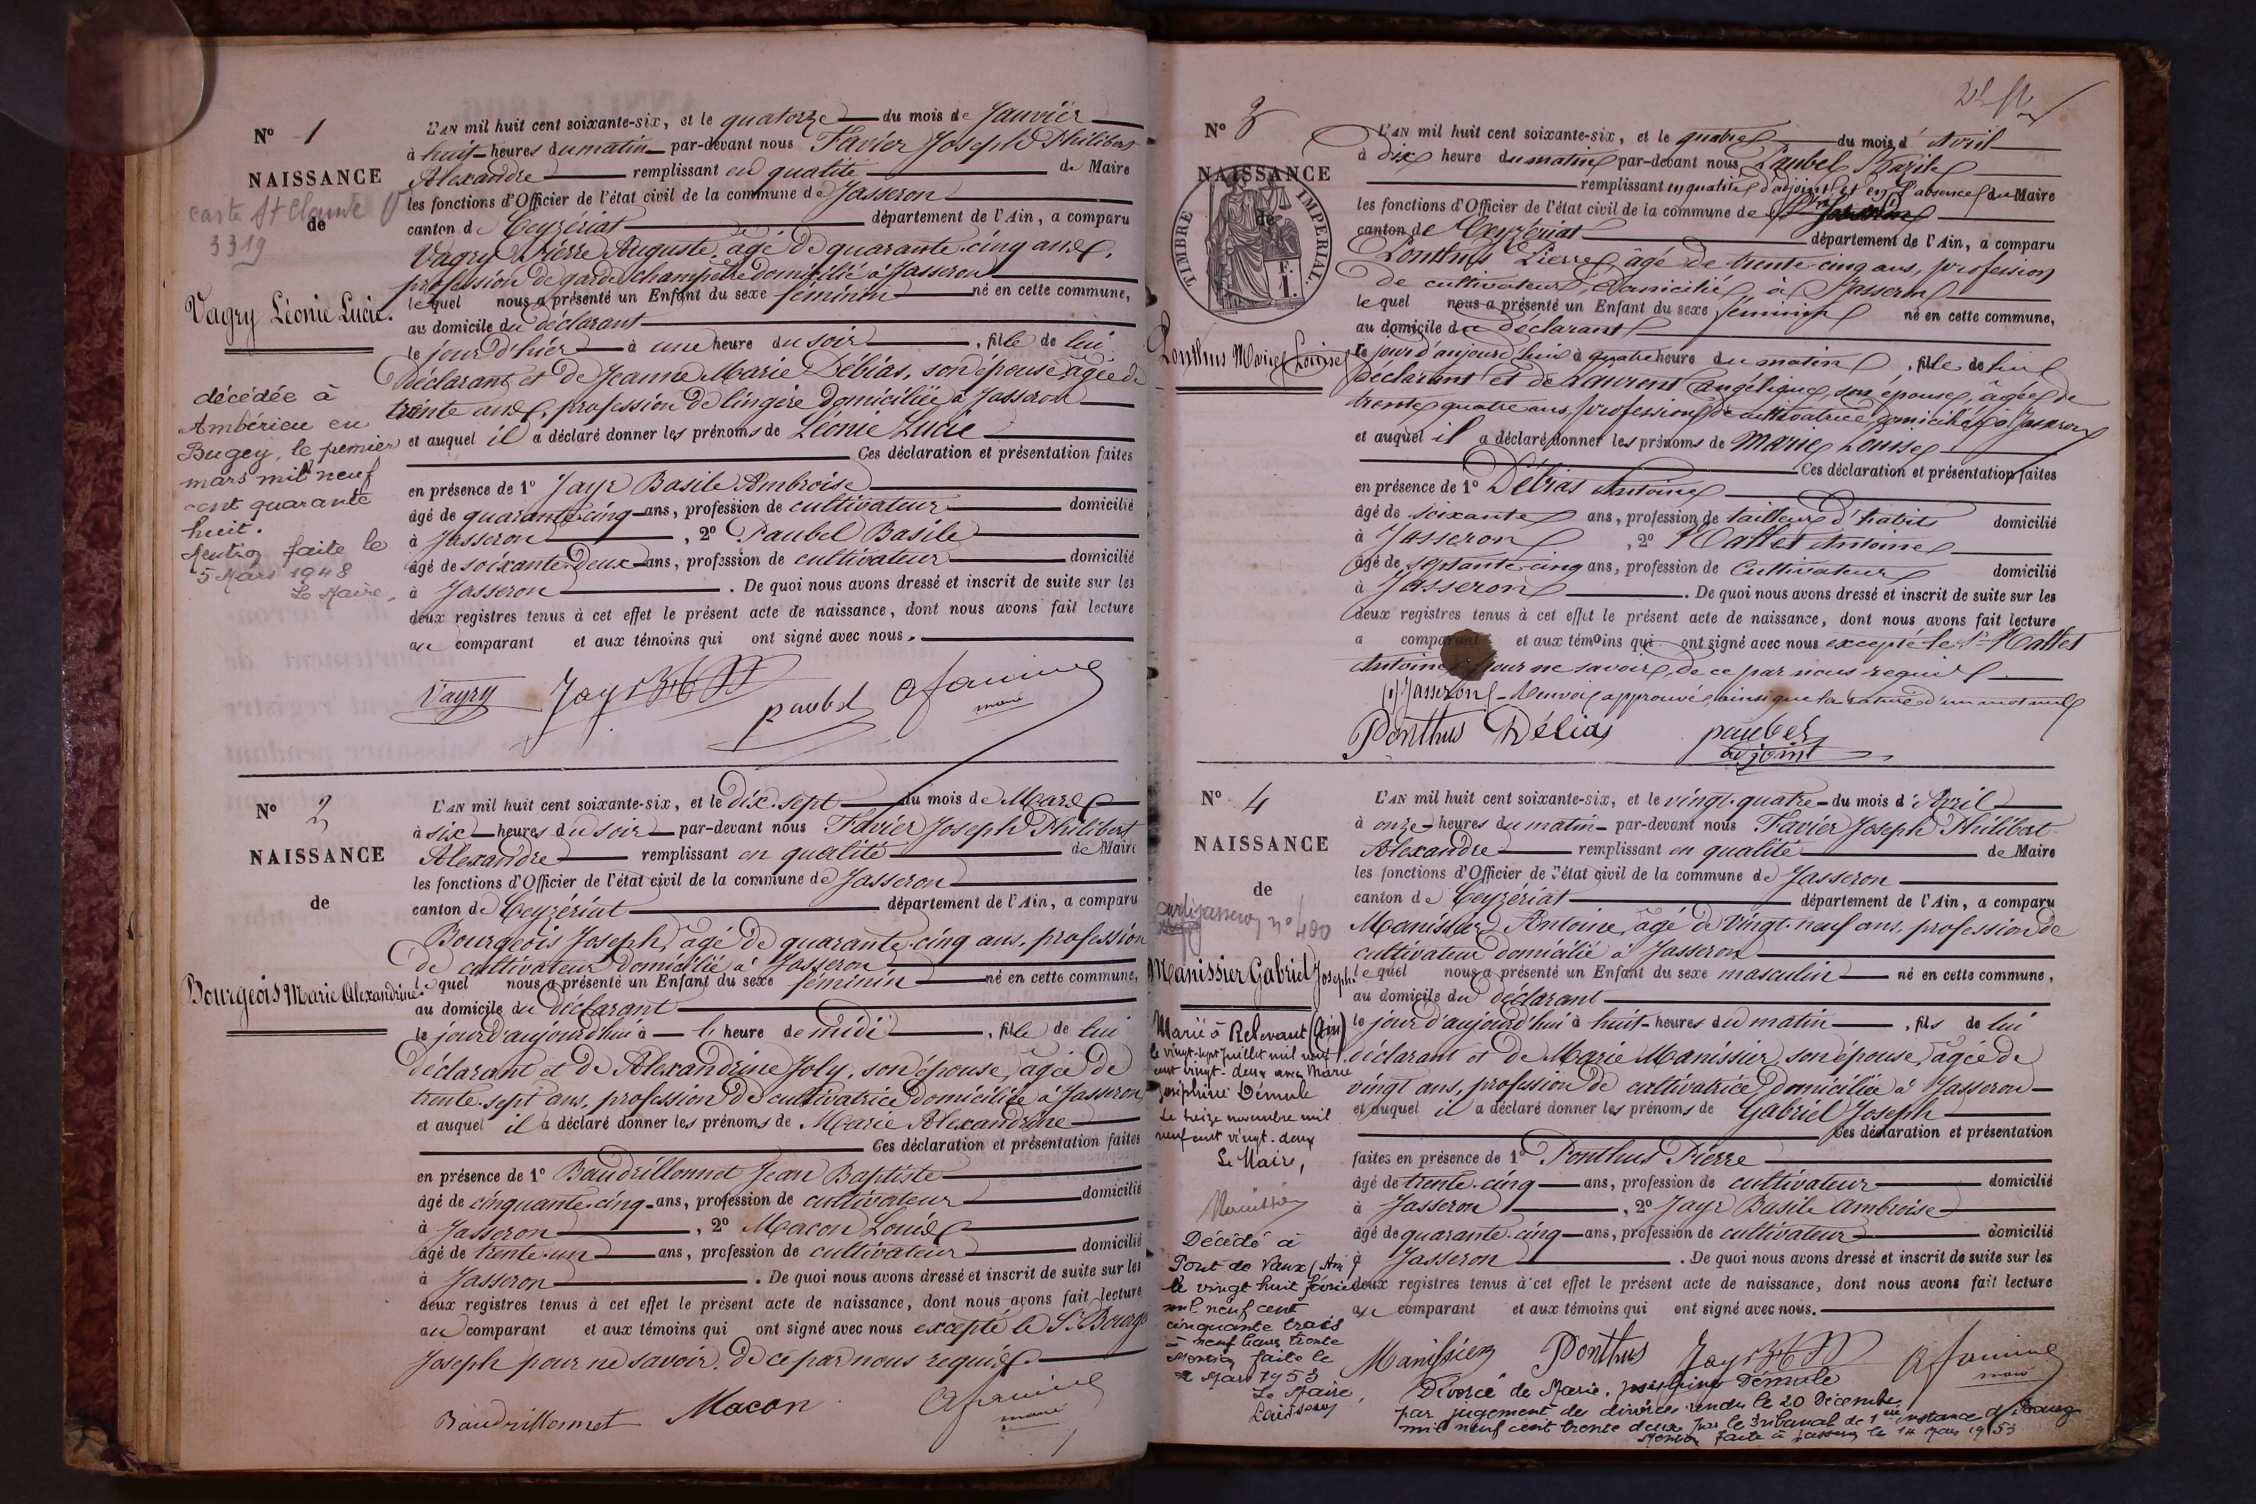 N° 1
NAISSANCE
carte St Claude
de
3319
Vagry Léonie Lucie.
décédée à
Ambérieu en
Bugey, le premier
mars mil neuf
cent quarante
huit.
Mention faite le
5 Mars 1948
Le Maire,
L'AN mil huit cent soixante-six, et le quatorze du mois de Janvier
à huit heures du matin par-devant nous Favier Joseph Philibert
Alexandre remplissant en qualité de Maire
les fonctions d'Officier de l'état civil de la commune de Jasseron
canton de Ceyzériat département de l'Ain, a comparu
Vagry Pierre Auguste, âgé de quarante-cinq ans,
profession de garde champêtre domicilié à Jasseron
lequel nous a présenté un Enfant du sexe féminin né en cette commune,
au domicile du déclarant
le jour d'hier à une heure du soir, fille de lui
Déclarant et de Jeanne Marie Débias, son épouse, âgée de
trente ans, profession de lingère domiciliée à Jasseron
et auquel il a déclaré donner les prénoms de Léonie Lucie
Ces déclaration et présentation faites
en présence de 1° Jayr Basile Ambroise
âgé de quarante-cinq ans, profession de cultivateur domicilié
à Jasseron, 2° Paubel Basile
âgé de soixante-deux ans, profession de cultivateur domicilié
à Jasseron. De quoi nous avons dressé et inscrit de suite sur les
deux registres tenus à cet effet le présent acte de naissance, dont nous avons fait lecture
au comparant et aux témoins qui ont signé avec nous.
Vagry Jayr paubel afavier
maire
N° 2
NAISSANCE
de
Bourgeois Marie Alexandrine.
L'AN mil huit cent soixante-six, et le dix-sept du mois de Mars
à six heures du soir par-devant nous Favier Joseph Philibert
Alexandre remplissant en qualité de Maire
les fonctions d'Officier de l'état civil de la commune de Jasseron
canton de Ceyzériat département de l'Ain, a comparu
Bourgeois Joseph, âgé de quarante-cinq ans, profession
de cultivateur domicilié à Jasseron
lequel nous a présenté un Enfant du sexe féminin né en cette commune,
au domicile du déclarant
le jour d'aujourd'hui à l'heure de midi, fille de lui
déclarant et de Alexandrine Joly, son épouse, âgée de
trente-sept ans, profession de cultivatrice domiciliée à Jasseron
et auquel il a déclaré donner les prénoms de Marie Alexandrine
Ces déclaration et présentation faites
en présence de 1° Baudrillonnet Jean Baptiste
âgé de cinquante-cinq ans, profession de cultivateur domicilié
à Jasseron, 2° Macon Louis
âgé de trente-un ans, profession de cultivateur domicilié
à Jasseron. De quoi nous avons dressé et inscrit de suite sur les
deux registres tenus à cet effet le présent acte de naissance, dont nous avons fait lecture
au comparant et aux témoins qui ont signé avec nous excepté le Sr Bourgs
Joseph pour ne savoir. de ce par nous requis.
Baudrillonnet Macon afavier
maire
N° 3
NAISSANCE
de
TIMBRE IMPERIAL.
Ponthus Marie Louise
L'AN mil huit cent soixante-six, et le quatre du mois d'Avril
à dix heure du matin par-devant nous Paubel Bazile
remplissant en qualité d'adjoint et en l'absence du Maire
les fonctions d'Officier de l'état civil de la commune de
canton de Ceyzériat département de l'Ain, a comparu
Ponthus Pierre, âgé de trente-cinq ans, profession
de cultivateur, domicilié à Jasseron
lequel nous a présenté un Enfant du sexe féminin né en cette commune,
au domicile du déclarant
le jour d'aujourd'hui à quatre heure du matin, fille de lui
déclarant et de Laurent Angélique, son épouse, âgée de
trente quatre ans, profession de cultivatrice, domiciliée à Jasseron
et auquel il a déclaré donner les prénoms de Marie Louise
Ces déclaration et présentation faites
en présence de 1° Débias Antoine
âgé de soixante ans, profession de tailleur d'habits domicilié
à Jasseron, 2° Mattet Antoine
âgé de septante-cinq ans, profession de Cultivateur domicilié
à Jasseron. De quoi nous avons dressé et inscrit de suite sur les
deux registres tenus à cet effet le présent acte de naissance, dont nous avons fait lecture
a comparant et aux témoins qui ont signé avec nous excepté le Sr Mattet
Antoine pour ne savoir, de ce par nous requis.
(1) Jasseron, Renvoi approuvé ainsi que la rature d'un mot nul
Ponthus Débias paubel
adjoint
N° 4
NAISSANCE
de
Jasseron n° 400
Manissier Gabriel Joseph.
Marié à Relevant (Ain)
le vingt-sept Juillet mil neuf
cent vingt-deux avec Marie
Joséphine Démule
Le treize novembre mil
neuf cent vingt-deux
Le Maire,
Décédé à
Pont de Vaux (Ain)
le vingt huit février
mil neuf cent
cinquante trois
à neuf heures trente
Mention faite le
2 Mars 1953
Le Maire,
L'AN mil huit cent soixante-six, et le vingt-quatre du mois d'Avril
à onze heures du matin par-devant nous Favier Joseph Philibert
Alexandre remplissant en qualité de Maire
les fonctions d'Officier de l'état civil de la commune de Jasseron
canton de Ceyzériat département de l'Ain, a comparu
Manissier Antoine, âgé de vingt-neuf ans, profession de
cultivateur domicilié à Jasseron
lequel nous a présenté un Enfant du sexe masculin né en cette commune,
au domicile du déclarant
le jour d'aujourd'hui à huit heures du matin, fils de lui
déclarant et de Marie Manissier, son épouse, âgée de
vingt ans, profession de cultivatrice, domiciliée à Jasseron
et auquel il a déclaré donner les prénoms de Gabriel Joseph
Ces déclaration et présentation
faites en présence de 1° Ponthus Pierre
âgé de trente-cinq ans, profession de cultivateur domicilié
à Jasseron, 2° Jayr Basile Ambroise
âgé de quarante-cinq ans, profession de cultivateur domicilié
à Jasseron. De quoi nous avons dressé et inscrit de suite sur les
deux registres tenus à cet effet le présent acte de naissance, dont nous avons fait lecture
au comparant et aux témoins qui ont signé avec nous.
Manissier Ponthus Jayr afavier
maire
Divorcé de Marie, Joséphine Démule
par jugement de divorce rendu le 20 Décembre
mil neuf cent trente deux par le tribunal de 1ère instance de Bourg
Mention faite à Jasseron le 14 Mars 1953